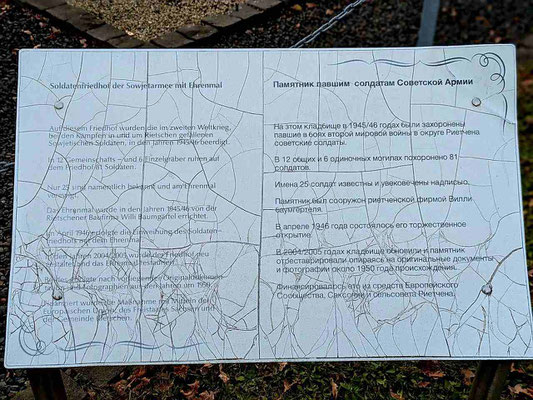 Soldatenfriedhof der Sowjetarmee mit Ehrenmal
Auf diesem Friedhof wurden die im zweiten Weltkrieg,
bei den Kämpfen in und um Rietschen gefallenen
Sowjetischen Soldaten, in den Jahren 1945/46 beerdigt.
In 12 Gemeinschafts – und 6 Einzelgräber ruhen auf
dem Friedhof 81 Soldaten.
Nur 25 sind namentlich bekannt und am Ehrenmal
verewigt.
Das Ehrenmal wurde in den Jahren 1945/46 von der
Rietschener Baufirma Willi Baumgärtel errichtet.
Im April 1946 erfolgte die Einweihung des Soldaten-
friedhofs mit dem Ehrenmal.
In den Jahren 2004/2005 wurde der Friedhof neu
gestaltet und das Ehrenmal restauriert.
nach vorliegenden Originaldokumenten
und Fotographien aus den Jahren um 1950.
Finanziert wurde die Maßnahme mit Mitteln der
Europäischen Union, des Freistaates Sachsen und
der Gemeinde Rietschen.
Памятник павшим солдатам Советской Армии
На этом кладбище в 1945/46 годах были захоронены
павшие в боях второй мировой войны в округе Риетчена
советские солдаты.
В 12 общих и 6 одиночных могилах похоронено 81
солдатов.
Имена 25 солдат известны и увековечены надписью.
Памятник был сооружон риетченской фирмой Вилли
Баумгертеля.
В апреле 1946 года состоялось его торжественное
открытие.
В 2004/2005 годах кладбище обновили и памятник
отреставрировали опираясь на оригинальные документы
и фотографии около 1950 года происхождения.
Финансировалось это из средств Европейского
Сообщества, Саксонии и сельсовета Риетчена.